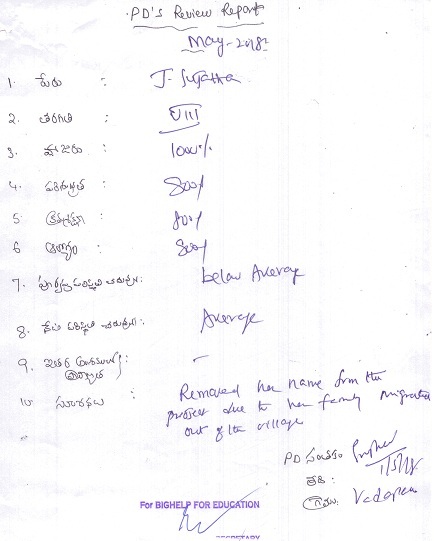 PD's Review Report
May-2018
1. పేరు : J. Sujatha
2. తరగతి : VIII
3. హాజరు : 100%
4. పరిశుభ్రత : 80%
5. క్రమశిక్షణ : 80%
6. ఆరోగ్యం : 80%
7. పూర్వపు పరిస్థితి చదువులో: below Average
8. నేటి పరిస్థితి చదువులో: Average
9. ఇతర : -
10. సూచనలు : Removed her name from the
project due to her family migrated
out of the village
PD సంతకం
తేది : 1/5/18
గ్రామం:
For BIGHELP FOR EDUCATION
SECRETARY